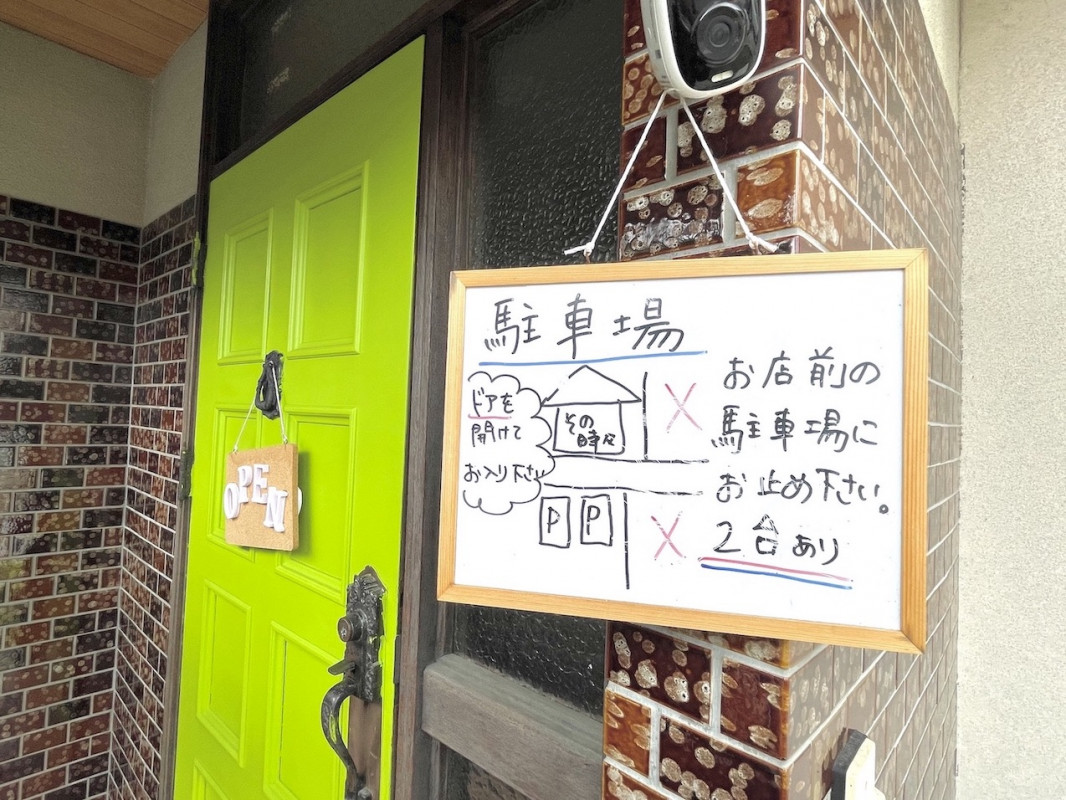 駐車場
ドアを
開けて
お入り下さい
その
時だ
P P
×
×
お店前の
駐車場に
お止め下さい。
2台あり
OPEN